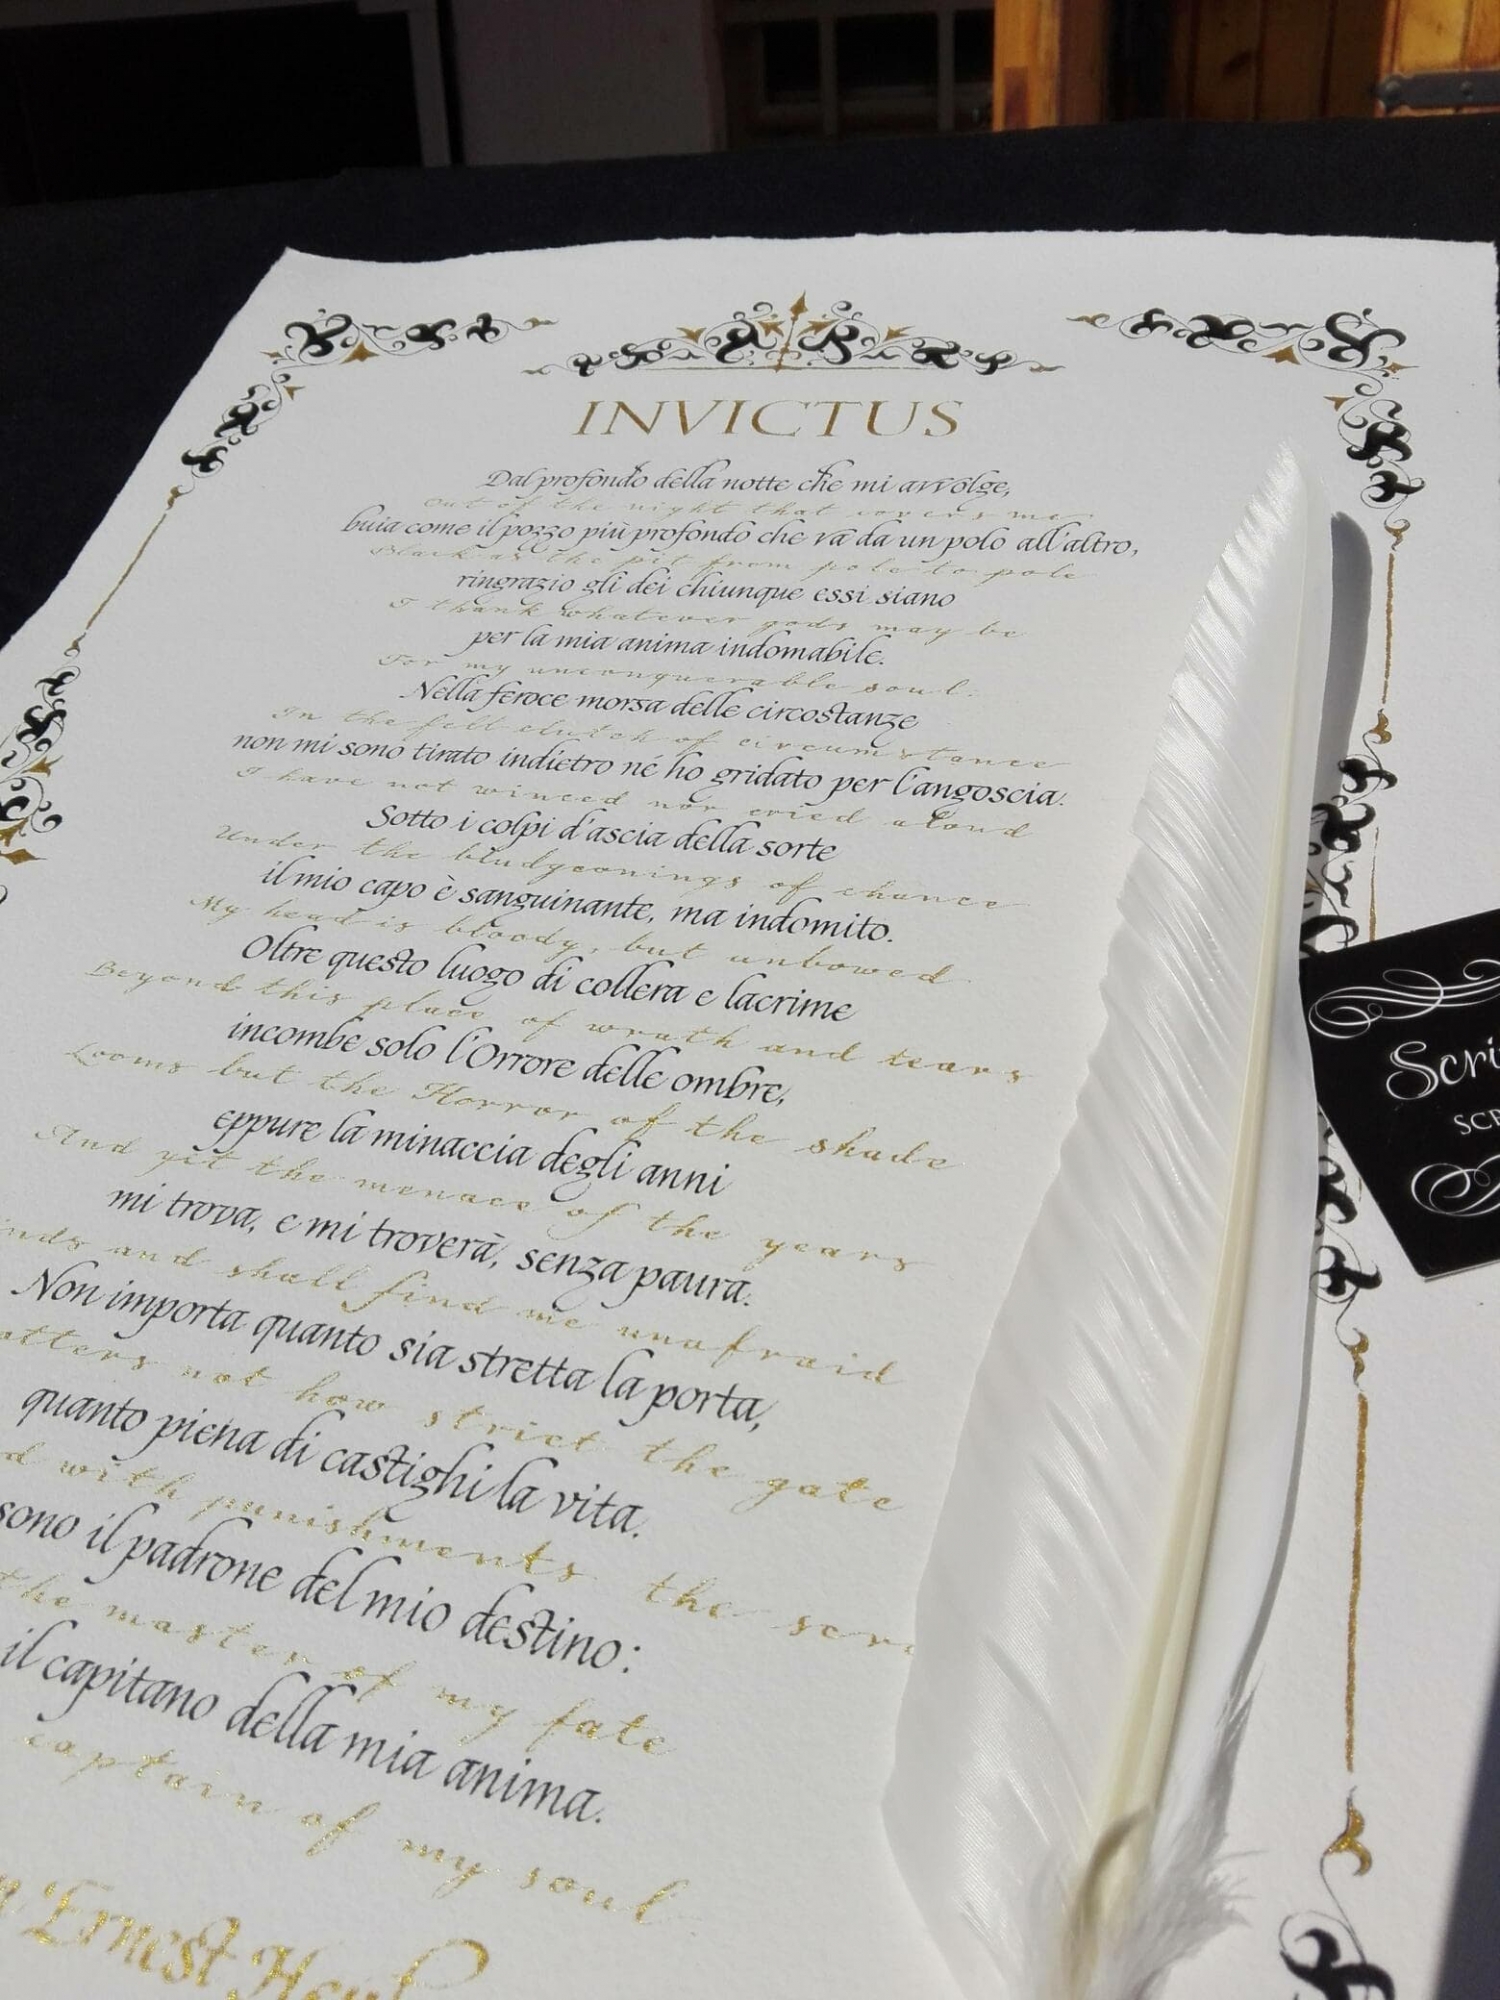 INVICTUS
Dal profondo della notte che mi avvolge,
Out of the night that covers me
buia come il pozzo più profondo che va da un polo all'altro,
Black as the pit from pole to pole
ringrazio gli dei chiunque essi siano
I thank whatever gods may be
per la mia anima indomabile.
For my unconquerable soul.
Nella feroce morsa delle circostanze
In the fell clutch of circumstance
non mi sono tirato indietro né ho gridato per l'angoscia.
I have not winced nor cried aloud
Sotto i colpi d'ascia della sorte
Under the bludgeonings of chance
il mio capo è sanguinante, ma indomito.
My head is bloody, but unbowed
Oltre questo luogo di collera e lacrime
Beyond this place of wrath and tears
incombe solo l'Orrore delle ombre,
Looms but the Horror of the shade
eppure la minaccia degli anni
And yet the menace of the years
mi trova, e mi troverà, senza paura.
inds and shall find me unafraid
Non importa quanto sia stretta la porta,
atters not how strict the gate
quanto piena di castighi la vita.
d with punishments the scro
sono il padrone del mio destino:
the master of my fate
il capitano della mia anima.
captain of my soul
Ernest Henl
Scri
SCR